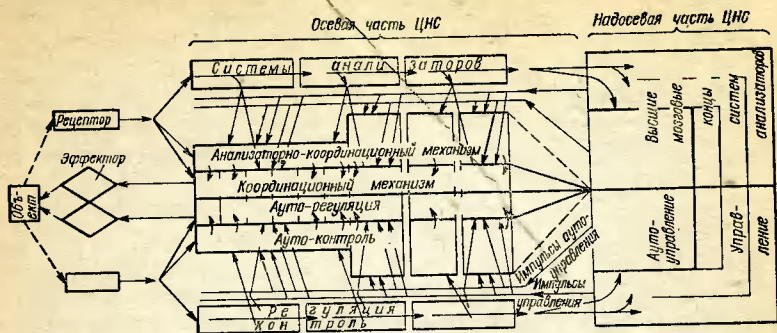 Осевая часть ЦНС
Надосевая часть ЦНС
Системы анали заторов
Рецептор
Эффектор
Объ-
ект
Анализаторно-координационный механизм
Координационный механизм
Ауто-регуляция
Ауто-контроль
Ре гуляция
кон троль
Импульсы ауто-
управления
Импульсы
управления
Высшие
мозговые
концы
систем
анализаторов
Ауто-
управление
Управ-
ление